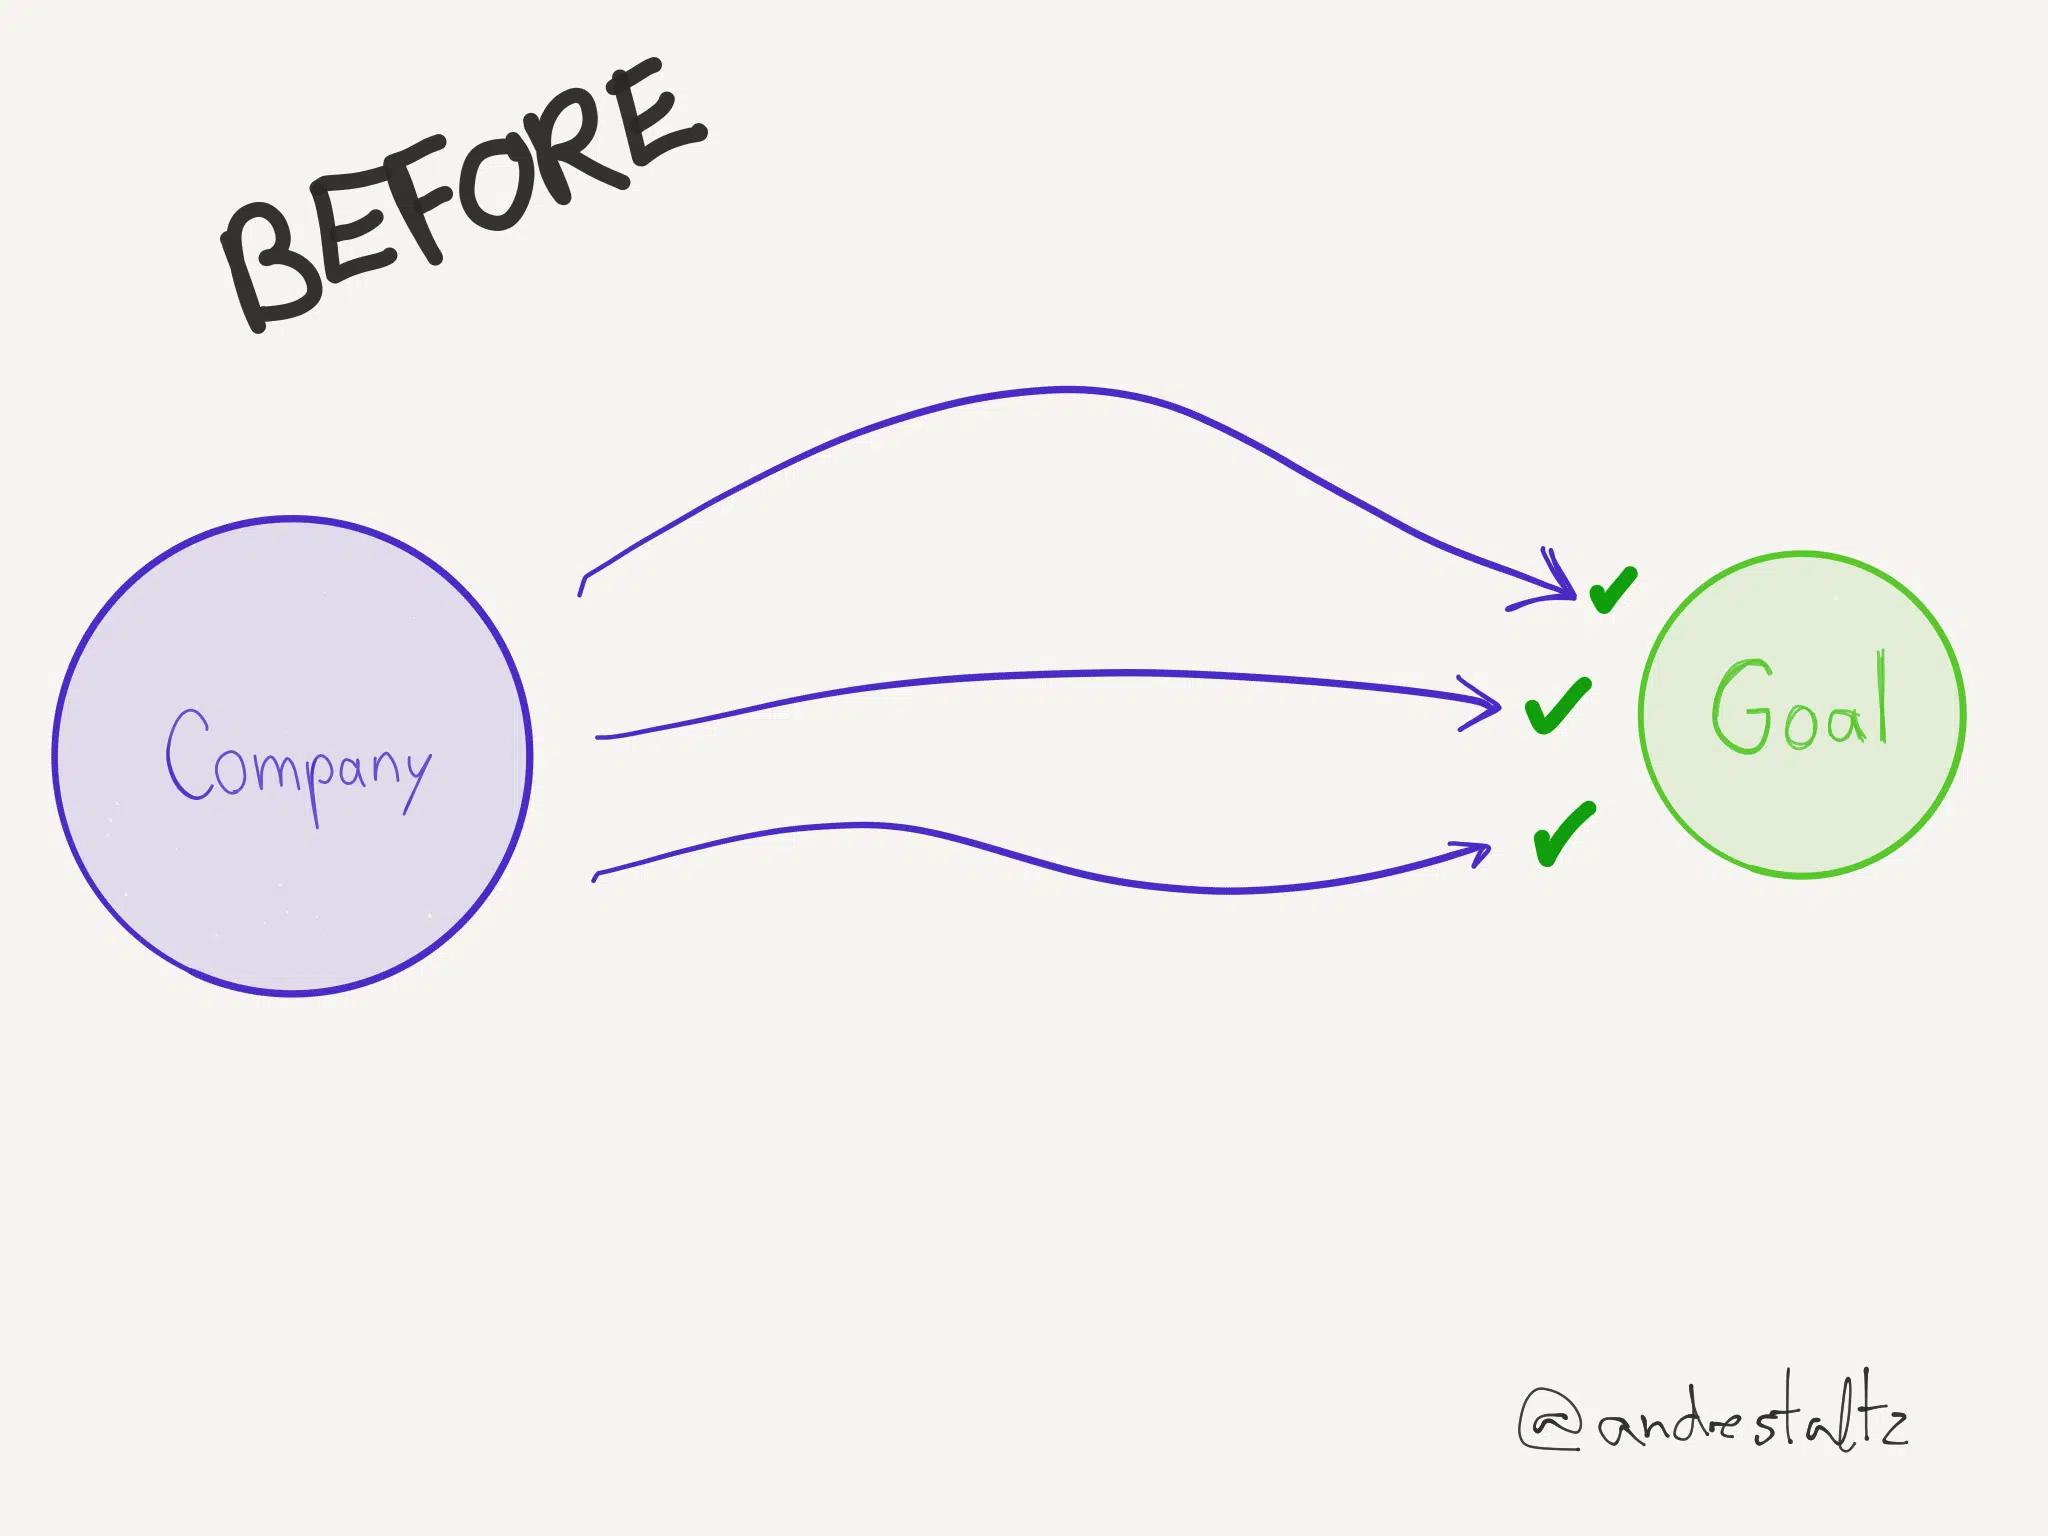 BEFORE
Company
Goal
@andrestaltz